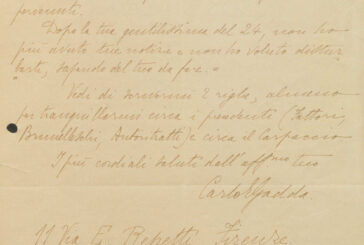 presenti.
Dopo la tua gentilissima del 24, non ho
più avuto tue notizie e non ho voluto distur
barti, sapendo del tuo da fare.
Vedi di scrivermi 2 righe, almeno
per tranquillarmi circa i pendenti (Fattori,
Brunelleschi, Autoritratti) e circa il Carpaccio
I più cordiali saluti dall'aff.mo tuo
Carlo E Gadda
11 Via E. Repetti Firenze